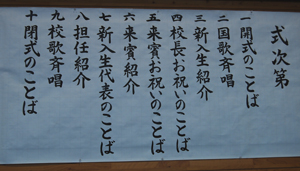 式次第
一 開式のことば
二 国歌斉唱
三 新入生紹介
四 校長お祝いのことば
五 来賓お祝いのことば
六 来賓紹介
七 新入生代表のことば
八 担任紹介
九 校歌斉唱
十 閉式のことば